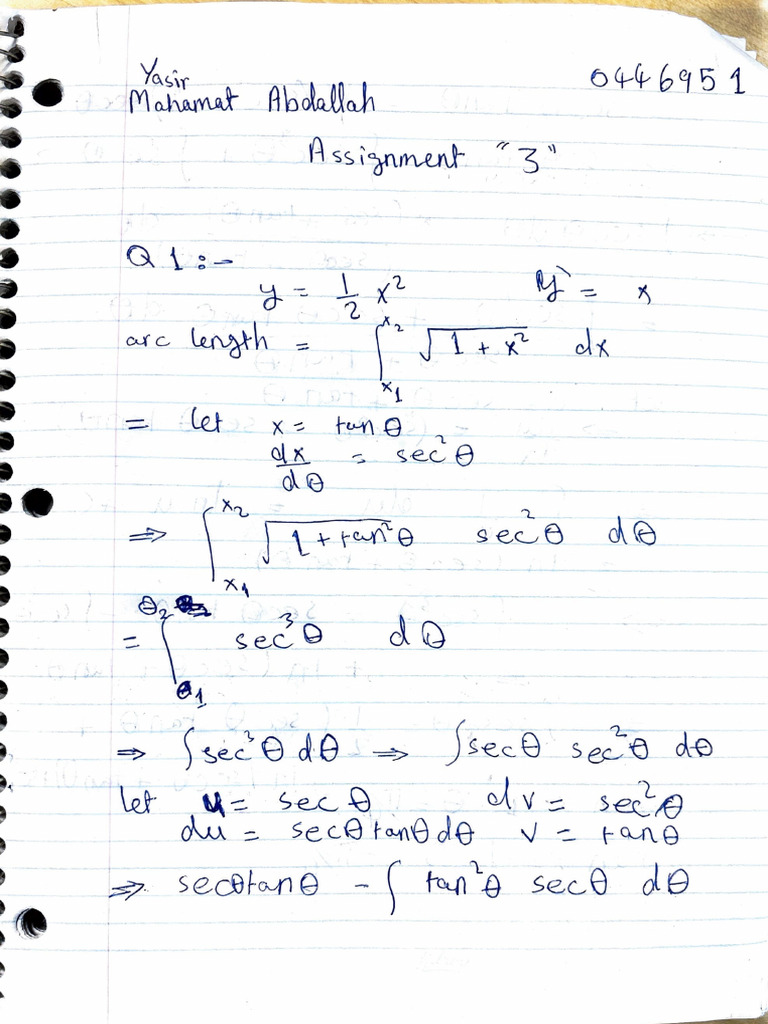 Yasir
Mahamat Abdallah 0446951
Assignment "3"
Q1:-
y = 1/2 x² y` = x
arc length = ∫_{x₁}^{x₂} √(1 + x²) dx
= let x = tanθ
dx/dθ = sec²θ
⇒ ∫_{x₁}^{x₂} √(1 + tan²θ) sec²θ dθ
= ∫_{θ₁}^{θ₂} sec³θ dθ
⇒ ∫sec³θ dθ ⇒ ∫secθ sec²θ dθ
let u = secθ dv = sec²θ
du = secθtanθdθ v = tanθ
⇒ secθtanθ - ∫ tan²θ secθ dθ